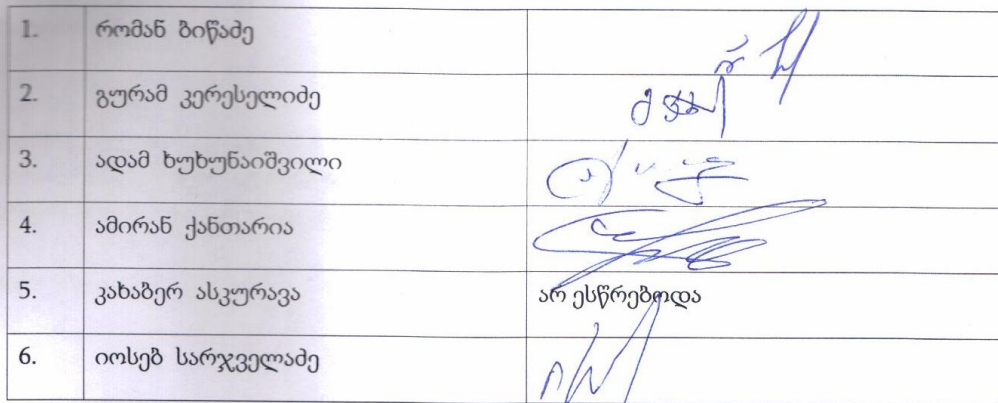 1. რომან ბიწაძე
2. გურამ კერესელიძე
3. ადამ ხუხუნაიშვილი
4. ამირან ქანთარია
5. კახაბერ ასკურავა არ ესწრებოდა
6. იოსებ სარჯველაძე